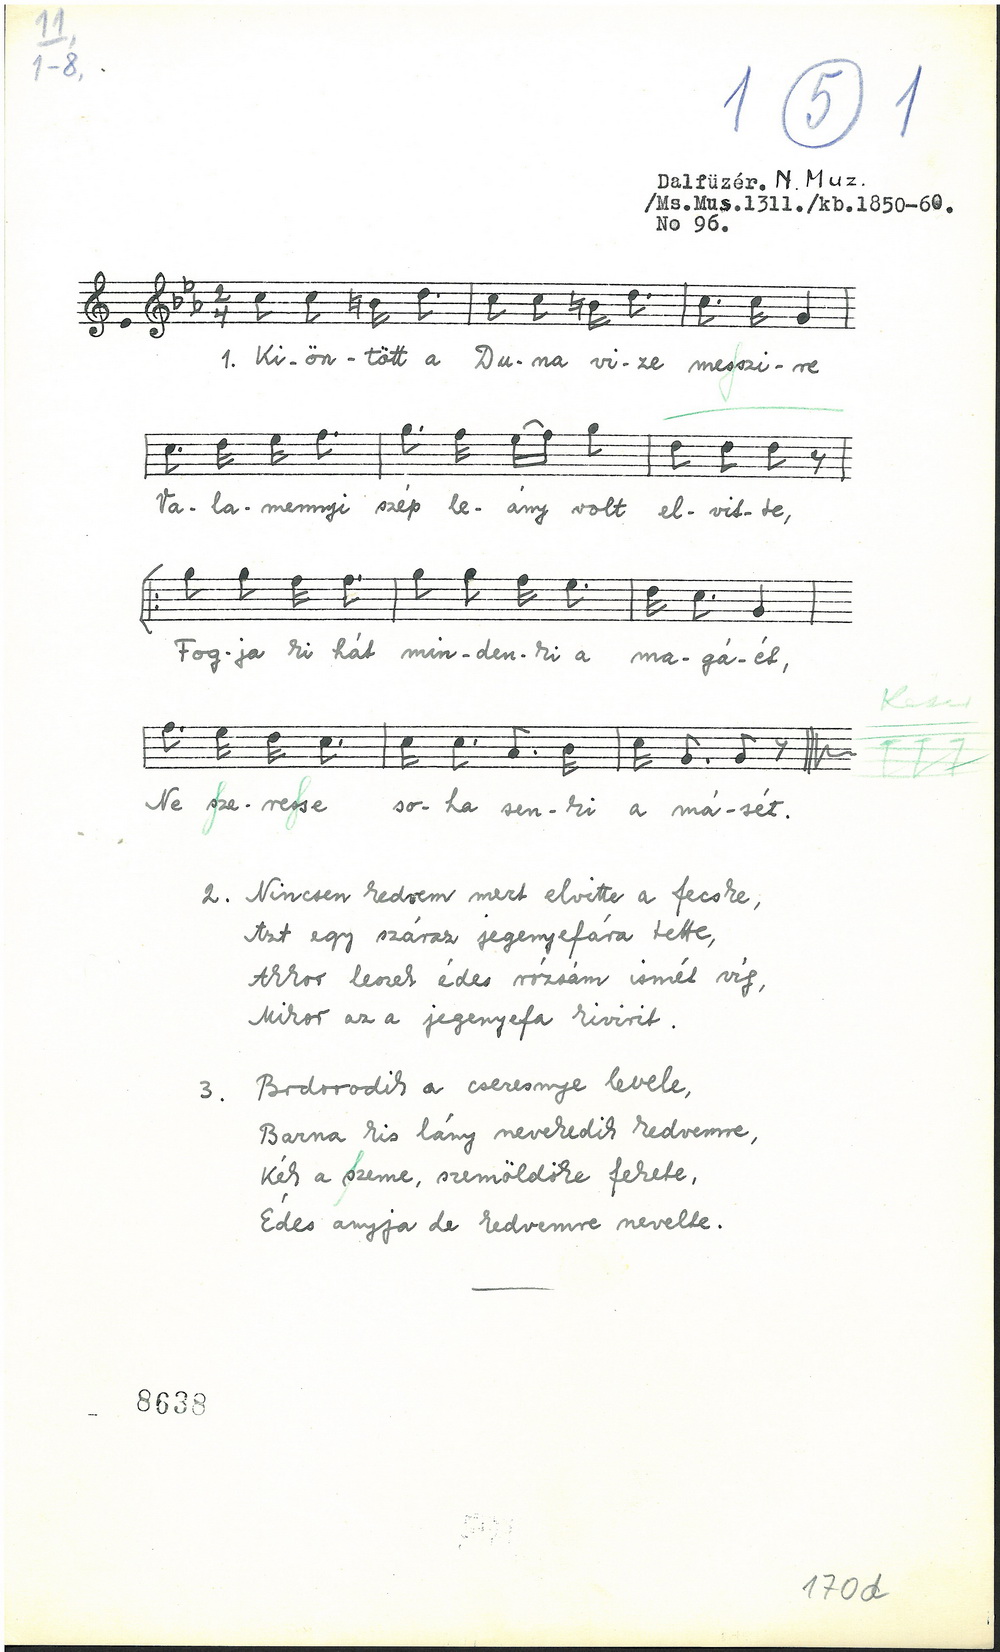 11,
1-8,
1 5 1
Dalfüzér. N. Muz.
/Ms.Mus.1311./kb.1850-60.
No 96.
1. Ki-ön-tött a Du-na vi-ze messzi-re
Va-la-mennyi szép le-ány volt el-vit-te,
Fog-ja ki hát min-den-ki a ma-gá-ét,
Ne sze-resse so-ha sen-ki a má-sét.
2. Nincsen kedvem mert elvitte a fecske,
Azt egy száraz jegenyefára tette,
Akkor leszek édes rózsám ismét víg,
Mikor az a jegenyefa kivirit.
3. Bodorodik a cseresnye levele,
Barna kis lány nevekedik kedvemre,
Kék a szeme, szemöldöke fekete,
Édes anyja de kedvemre nevelte.
8638
170d